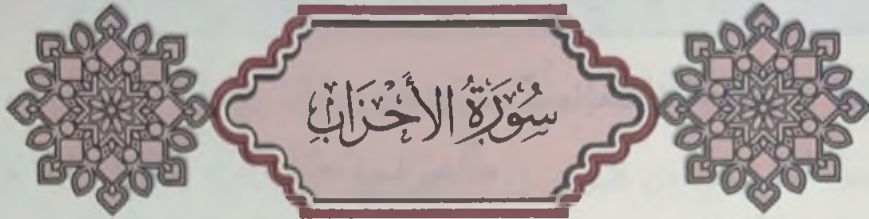 سُورَةُ الأَحْزَابِ